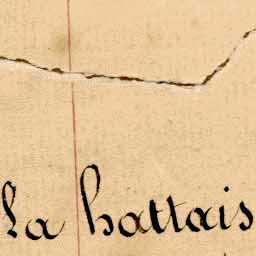 la hattais